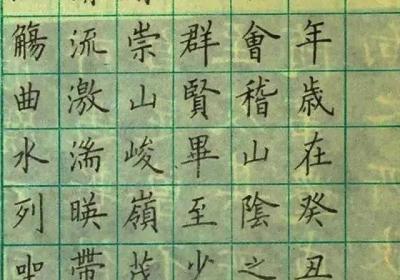 年歳在癸丑
會稽山陰之
群賢畢至少
崇山峻嶺茂
流激湍暎帶
觴曲水列